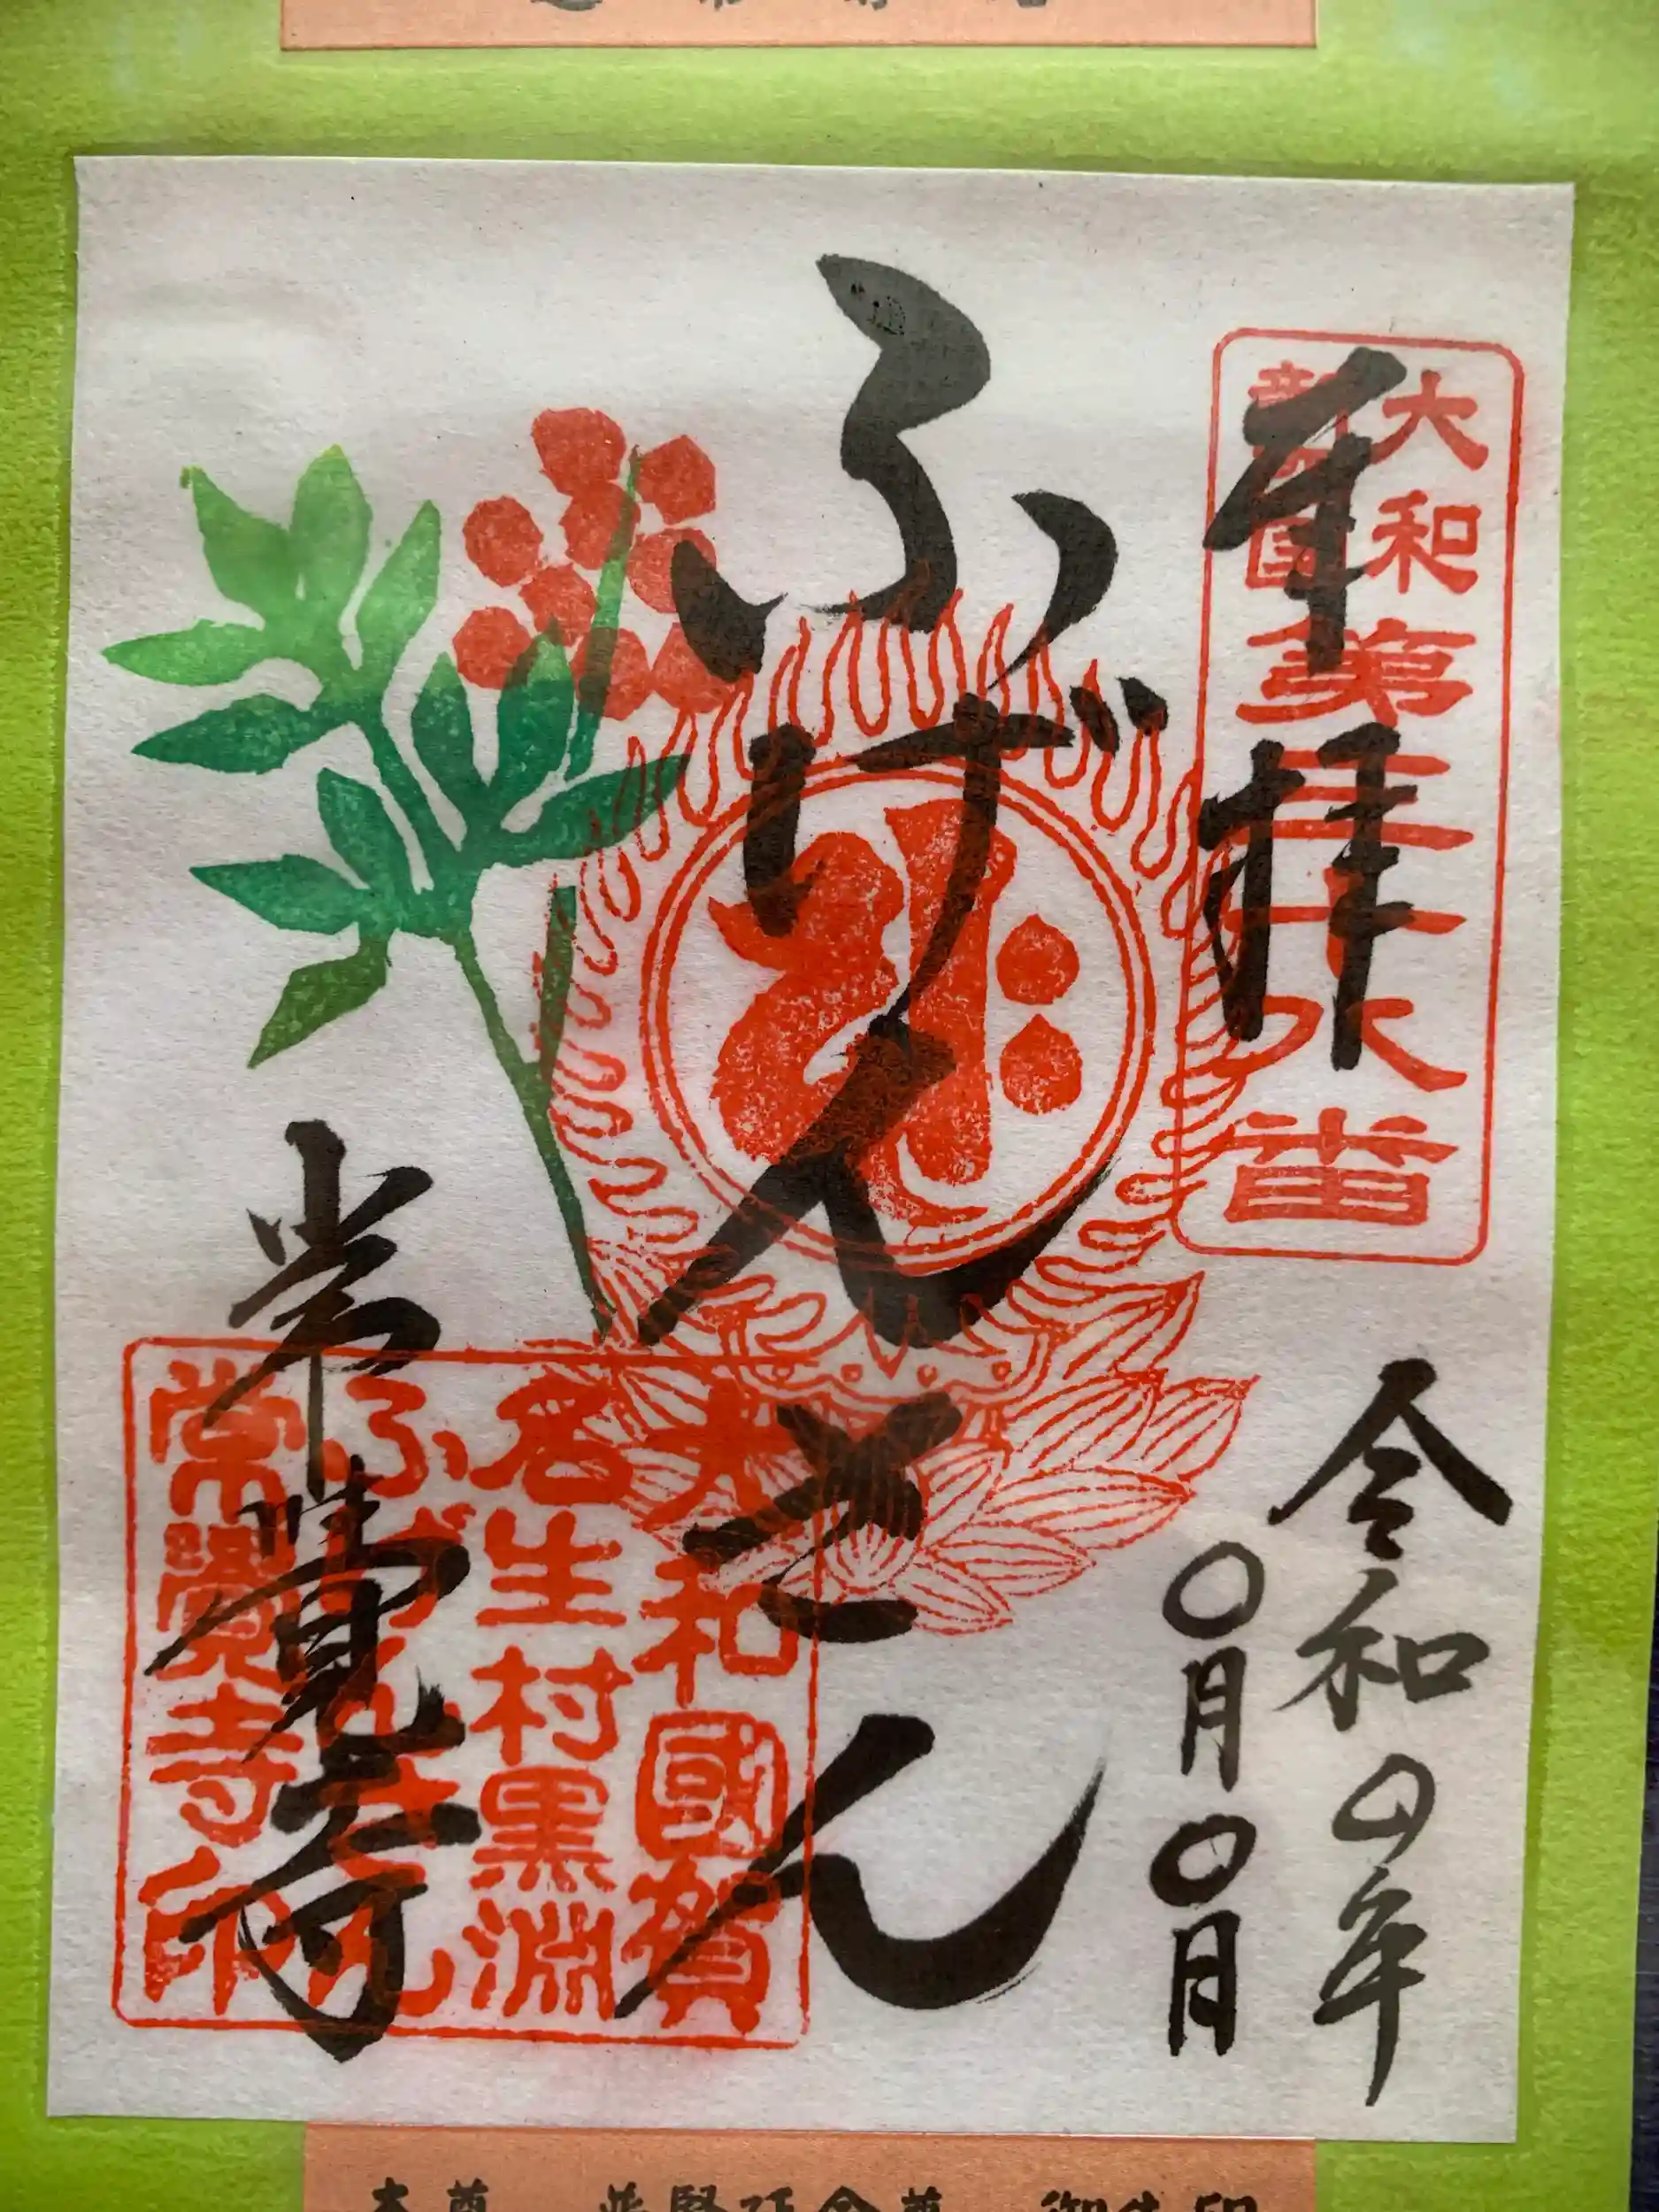 奉拝
大和
新四国
第三十八番
令和四年
〇月〇日
ふげんさん
常覺寺
大和國賀
名生村黒淵
ふげんさん
常覺寺印
本尊 普賢延命尊 御朱印